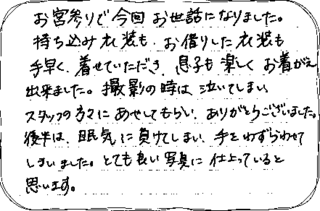 お宮参りで今回お世話になりました。
持ち込み衣装も、お借りした衣装も
手早く着せていただき、息子も楽しくお着がえ
出来ました。撮影の時は泣いてしまい、
スタッフの方々にあやしてもらい、ありがとうございました。
後半は、眠気に負けてしまい、手をわずらわせて
しまいました。とても良い写真に仕上っていると
思います。